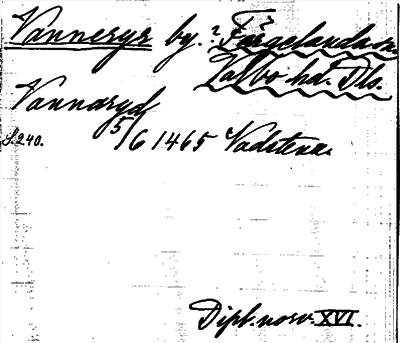 Vanneryr by. ? Färgelanda sn.
Valbo hd. Dls.
Vannaryd
S. 240. 5/6 1465 Vadstena.
Dipl. norv. XVI.